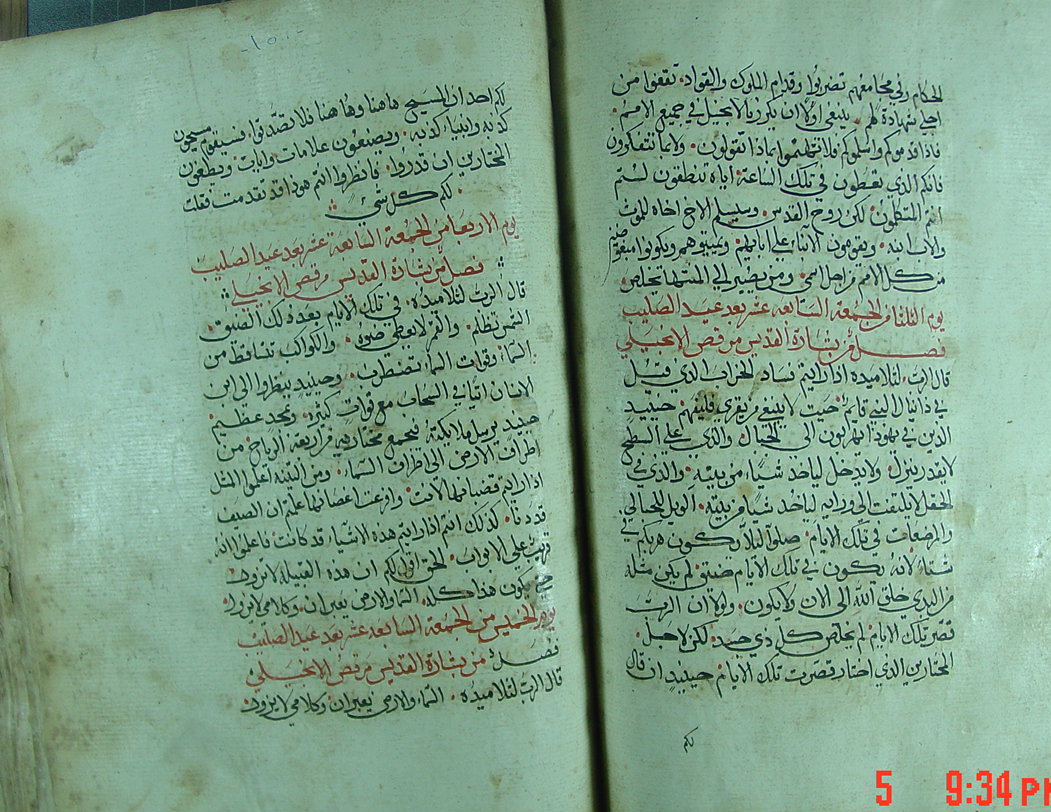 الحكام وفي مجامعهم تضربوا وقدام الملوك والقواد تقفوا من
اجلي شهادة لهم ينبغي اولا ان يكرز بالانجيل في جميع الامم
فاذا قدموكم واسلموكم فلا تهتموا بماذا تقولون ولا بما تتفكرون
فانكم الذي تعطون في تلك الساعة اياه تنطقون لستم
انتم المتكلمون لكن روح القدس وسيسلم الاخ اخاه للموت
والاب ابنه ويقومون الابناء على ابايهم ويميتوهم ويكونوا مبغوضين
من كل الامم من اجل اسمي ومن يصبر الى المنتها يخلص
يوم الثلثا من الجمعة السابعه عشر بعد عيد الصليب
فصل من بشارة القديس مرقص الانجيلي
قال الرب لتلاميذه اذا رايتم فساد الخراب الذي قيل
في دانيال النبي قايم حيث لا ينبغي من يقري فليفهم حينيد
الدين في يهوذا يهربون الى الجبال والذي على السطح
لا يقدر ينزل ولا يدخل لياخذ شيا من بيته والذي في
الحقل لا يلتفت الى ورايه لياخذ شيا من بيته الويل للحبالي
والمرضعات في تلك الايام صلوا ليلا يكون هربكم في
شتاء لانه يكون في تلك الايام ضيق لم يكن مثله
من البدي خلق الله الى الان ولا يكون ولولا ان الرب
قصر تلك الايام لم يخلص كل دي جسد لكن لاجل
المختارين الذي اختار قصرت تلك الايام حينيد ان قال
لكم
لكم احد ان المسيح هاهنا وها هنا فلا تصدقوا فسيقوم مسيحين
كدبه وانبياء كدبه ويصنعون علامات وايات ويطغون
المختارين ان قدروا فانظروا انتم هوذا قد تقدمت فقلت
لكم كل شي
يوم الاربعا من الجمعة السابعة عشر بعد عيد الصليب
فصل من بشارة القديس مرقص الانجيلي
قال الرب لتلاميذه في تلك الايام بعد ذلك الضيق
الشمس تظلم والقمر لا يعطي ضوه والكواكب تتساقط من
السماء وقوات السماء تضطرب وحينيد ينظروا الى ابن
الانسان اتيا في السحاب مع قوات كثيره ومجد عظيم
حينيد يرسل ملايكته فيجمع مختاريه من اربعة الرياح من
اطراف الارض الى اطراف السماء ومن التينة اعلموا المثل
اذا رايتم قضبانها لانت وافرعت اغصانها علمتم ان الصيف
قد دنا كذلك انتم اذا رايتم هذه الاشياء قد كانت فاعلموا انه
قريب على الابواب الحق اقول لكم ان هذه القبيلة لا تزول
حتى يكون هذا كله السماء والارض يعبران وكلامي لا يزول
يوم الخميس من الجمعة السابعه عشر بعد عيد الصليب
فصل من بشارة القديس مرقص الانجيلي
قال الرب لتلاميذه السماء والارض يعبران وكلامي لا يزول
5 9:34 PM